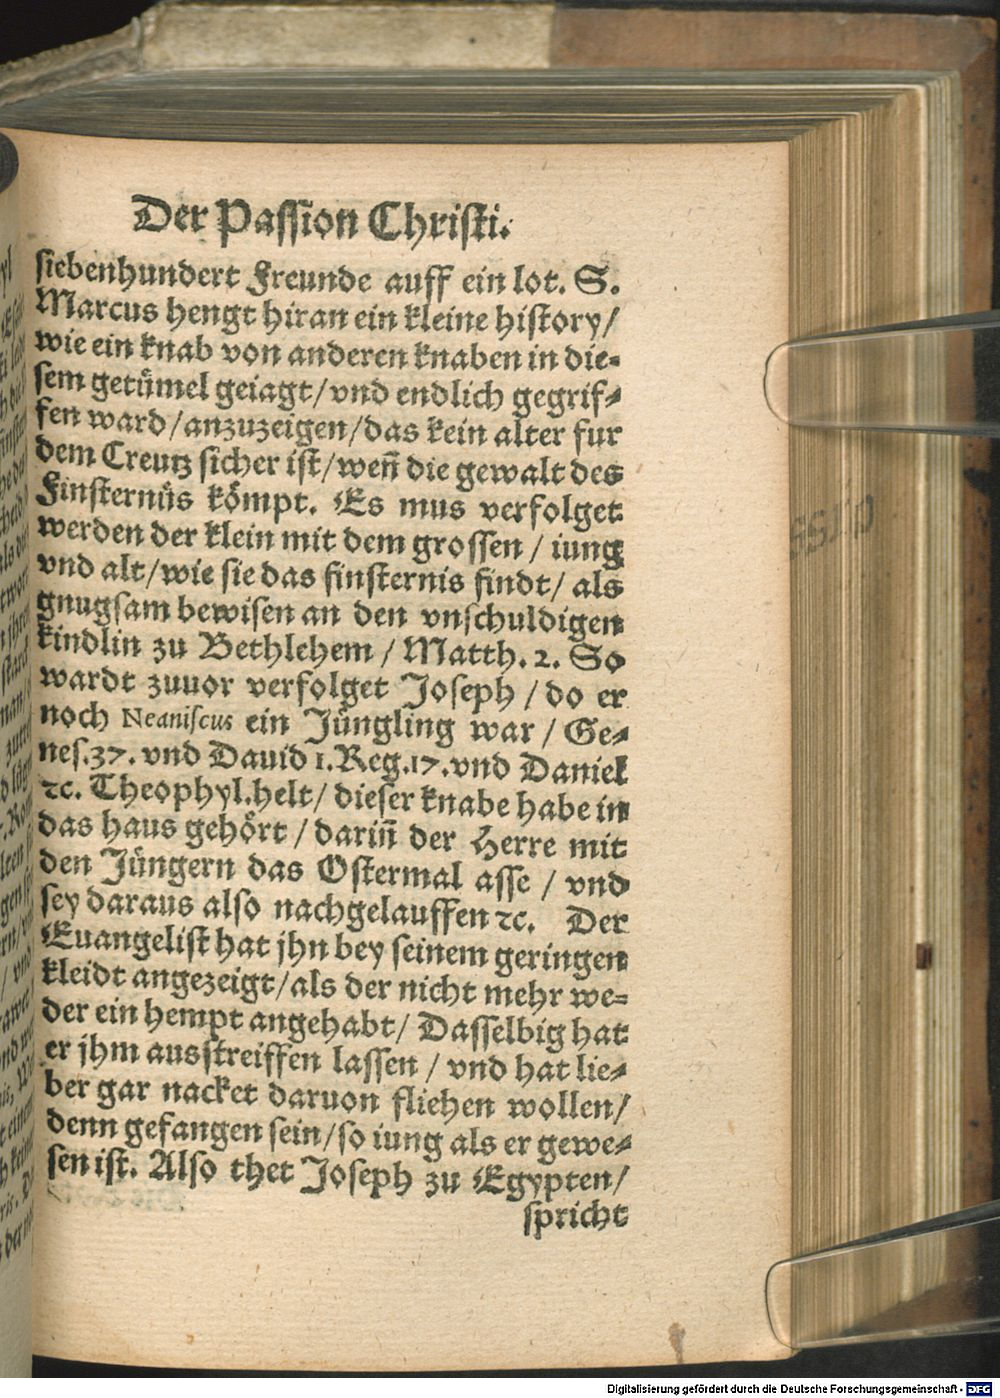 Der Passion Christi.
siebenhundert Freunde auff ein lot. S.
Marcus hengt hiran ein kleine history/
wie ein knab von anderen knaben in die-
sem getümel geiagt/ vnd endlich gegrif-
fen ward/ anzuzeigen/ das kein alter fur
dem Creutz sicher ist/ weñ die gewalt des
Finsternüs kömpt. Es mus verfolget
werden der klein mit dem grossen / iung
vnd alt/ wie sie das finsternis findt/ als
gnugsam bewisen an den vnschuldigen
kindlin zu Bethlehem / Matth. 2. So
wardt zuuor verfolget Joseph / do er
noch Neaniscus ein Jüngling war / Ge-
nes.37. vnd Dauid 1. Reg.17. vnd Daniel
ꝛc. Theophyl. helt/ dieser knabe habe in
das haus gehört / dariñ der Herre mit
den Jüngern das Ostermal asse / vnd
sey daraus also nachgelauffen ꝛc. Der
Euangelist hat jhn bey seinem geringen
kleidt angezeigt/ als der nicht mehr we-
der ein hempt angehabt/ Dasselbig hat
er jhm ausstreiffen lassen / vnd hat lie-
ber gar nacket daruon fliehen wollen/
denn gefangen sein/ so iung als er gewe-
sen ist. Also thet Joseph zu Egypten/
spricht
Digitalisierung gefördert durch die Deutsche Forschungsgemeinschaft - DFG